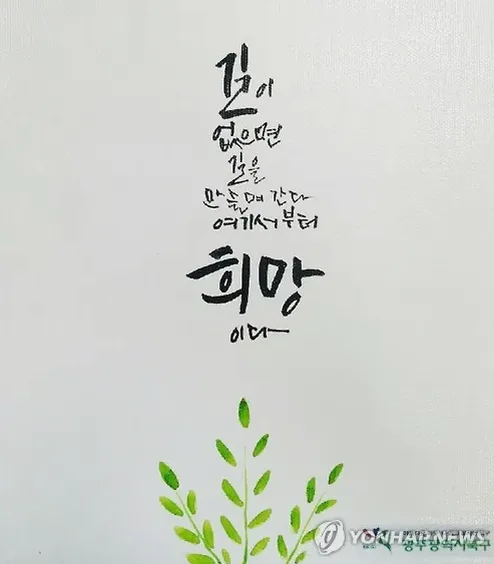 길이
없으면
길을
만들며 간다
여기서부터
희망
이다
YONHAPNEWS
광주광역시북구